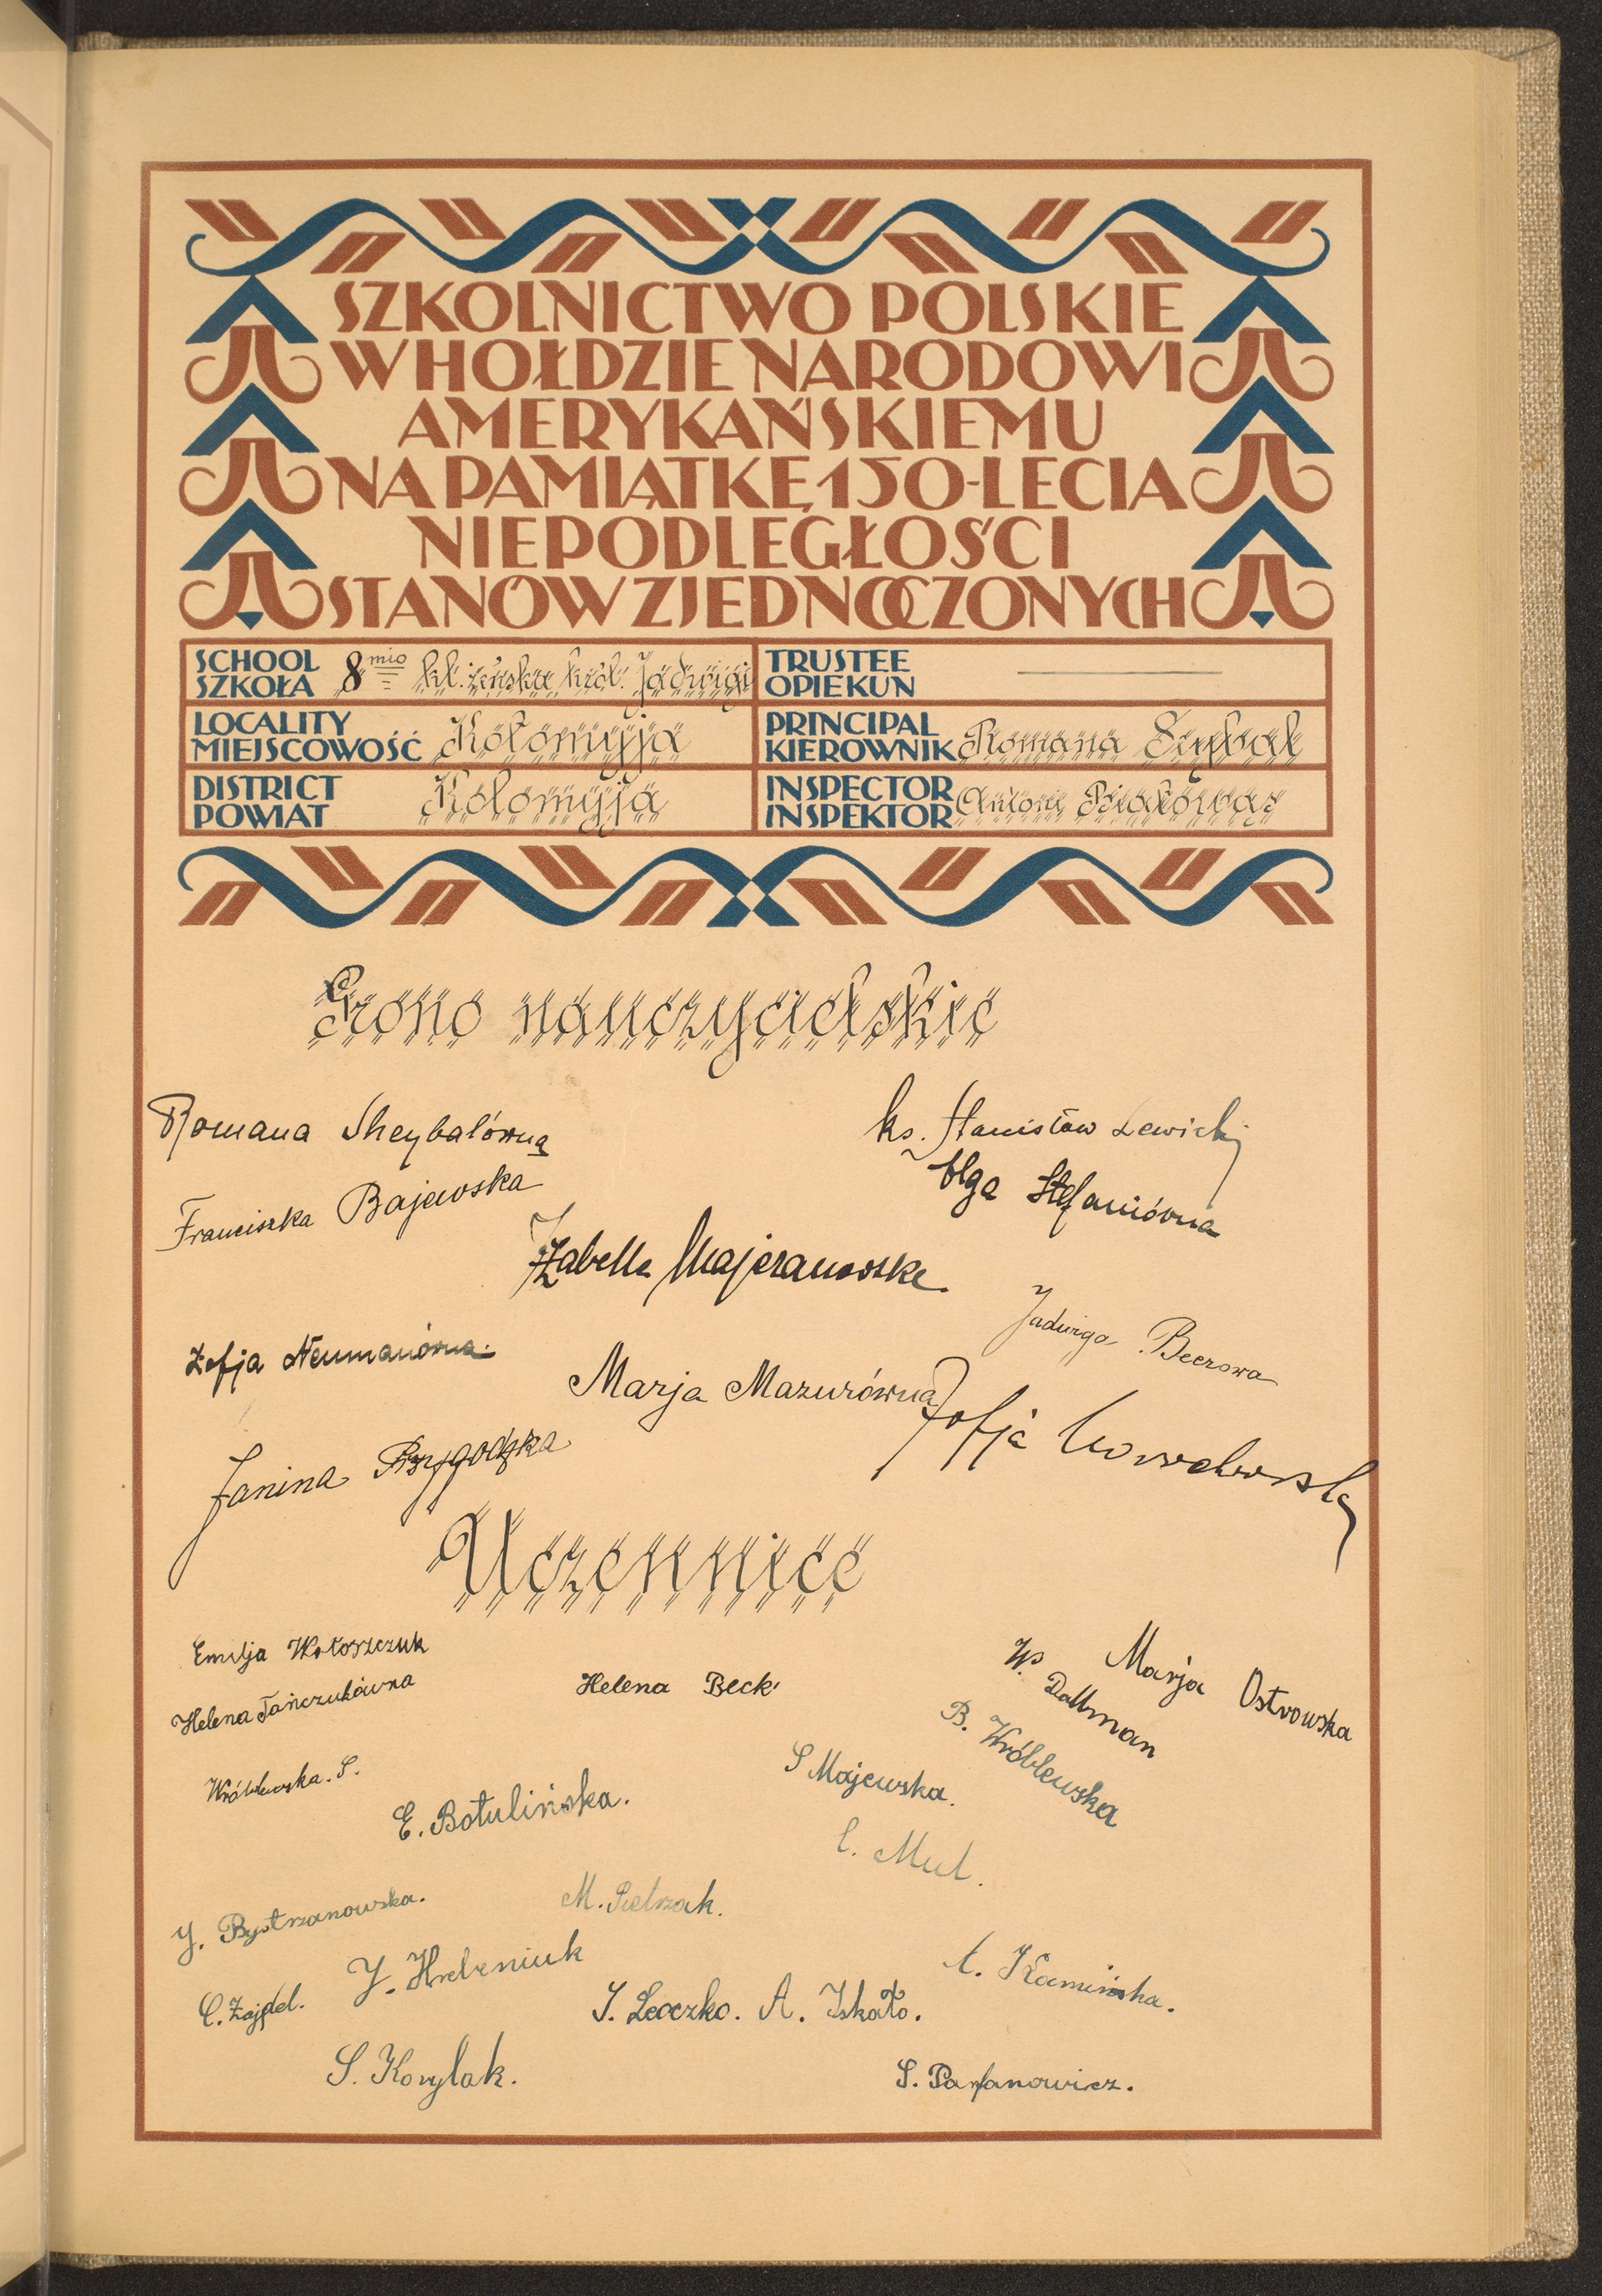 SZKOLNICTWO POLSKIE
W HOŁDZIE NARODOWI
AMERYKAŃSKIEMU
NA PAMIĄTKĘ 150-LECIA
NIEPODLEGŁOŚCI
STANÓW ZJEDNOCZONYCH
SCHOOL
SZKOŁA 8mio kl. żeńskie król. Jadwigi
TRUSTEE
OPIEKUN
LOCALITY
MIEJSCOWOŚĆ Kołomyja
PRINCIPAL
KIEROWNIK Romana
DISTRICT
POWIAT Kołomyja
INSPECTOR
INSPEKTOR Antoni
Grono nauczycielskie
Romana Sheybalówna
ks. Stanisław Lewicki
Olga Stefaniówna
Franciszka Bajewska
Izabella Majeranowska
Jadwiga Beerowa
Zofja Neumanówna
Marja Mazurówna
Zofja
Janina Przygodzka
Uczennice
Emilja Wołoszczuk
Marja Ostrowska
W. Dallman
Helena Beck
Helena Tańczukówna
B. Wróblewska
Wróblewska. S.
S Majewska.
E. Botulińska.
C. Mul.
M. Pietrzak.
J. Bystrzanowska.
J. Hrebeniuk
A. Kamińska.
C. Zajdel.
J. Leoczko. A. Iskało.
S. Korylak.
S. Parfanowicz.